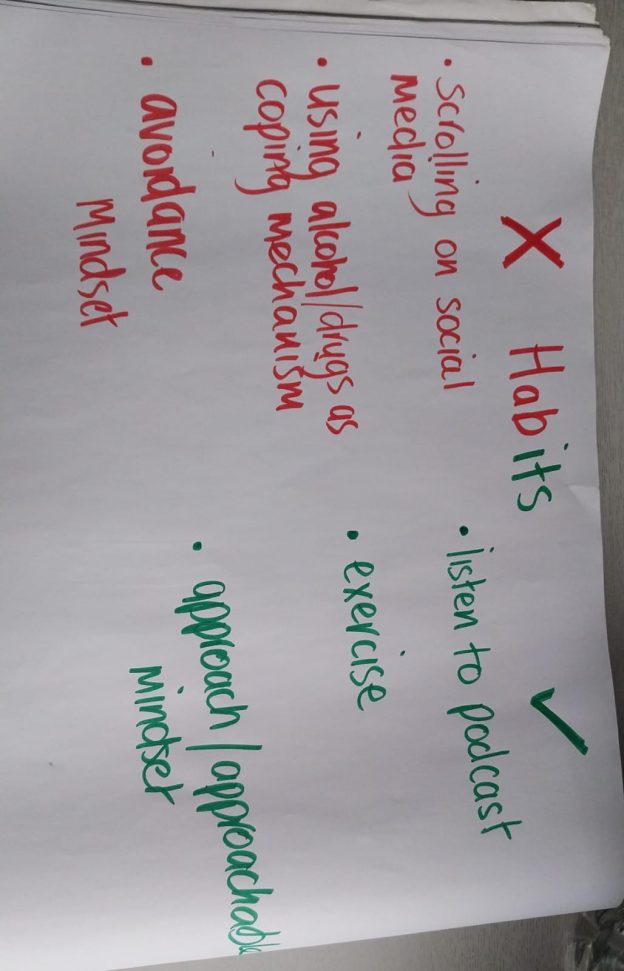 X Habits ✓
• scrolling on social
media
• using alcohol/drugs as
coping mechanism
• avoidance
Mindset
• listen to podcast
• exercise
• approach/approachable
mindset